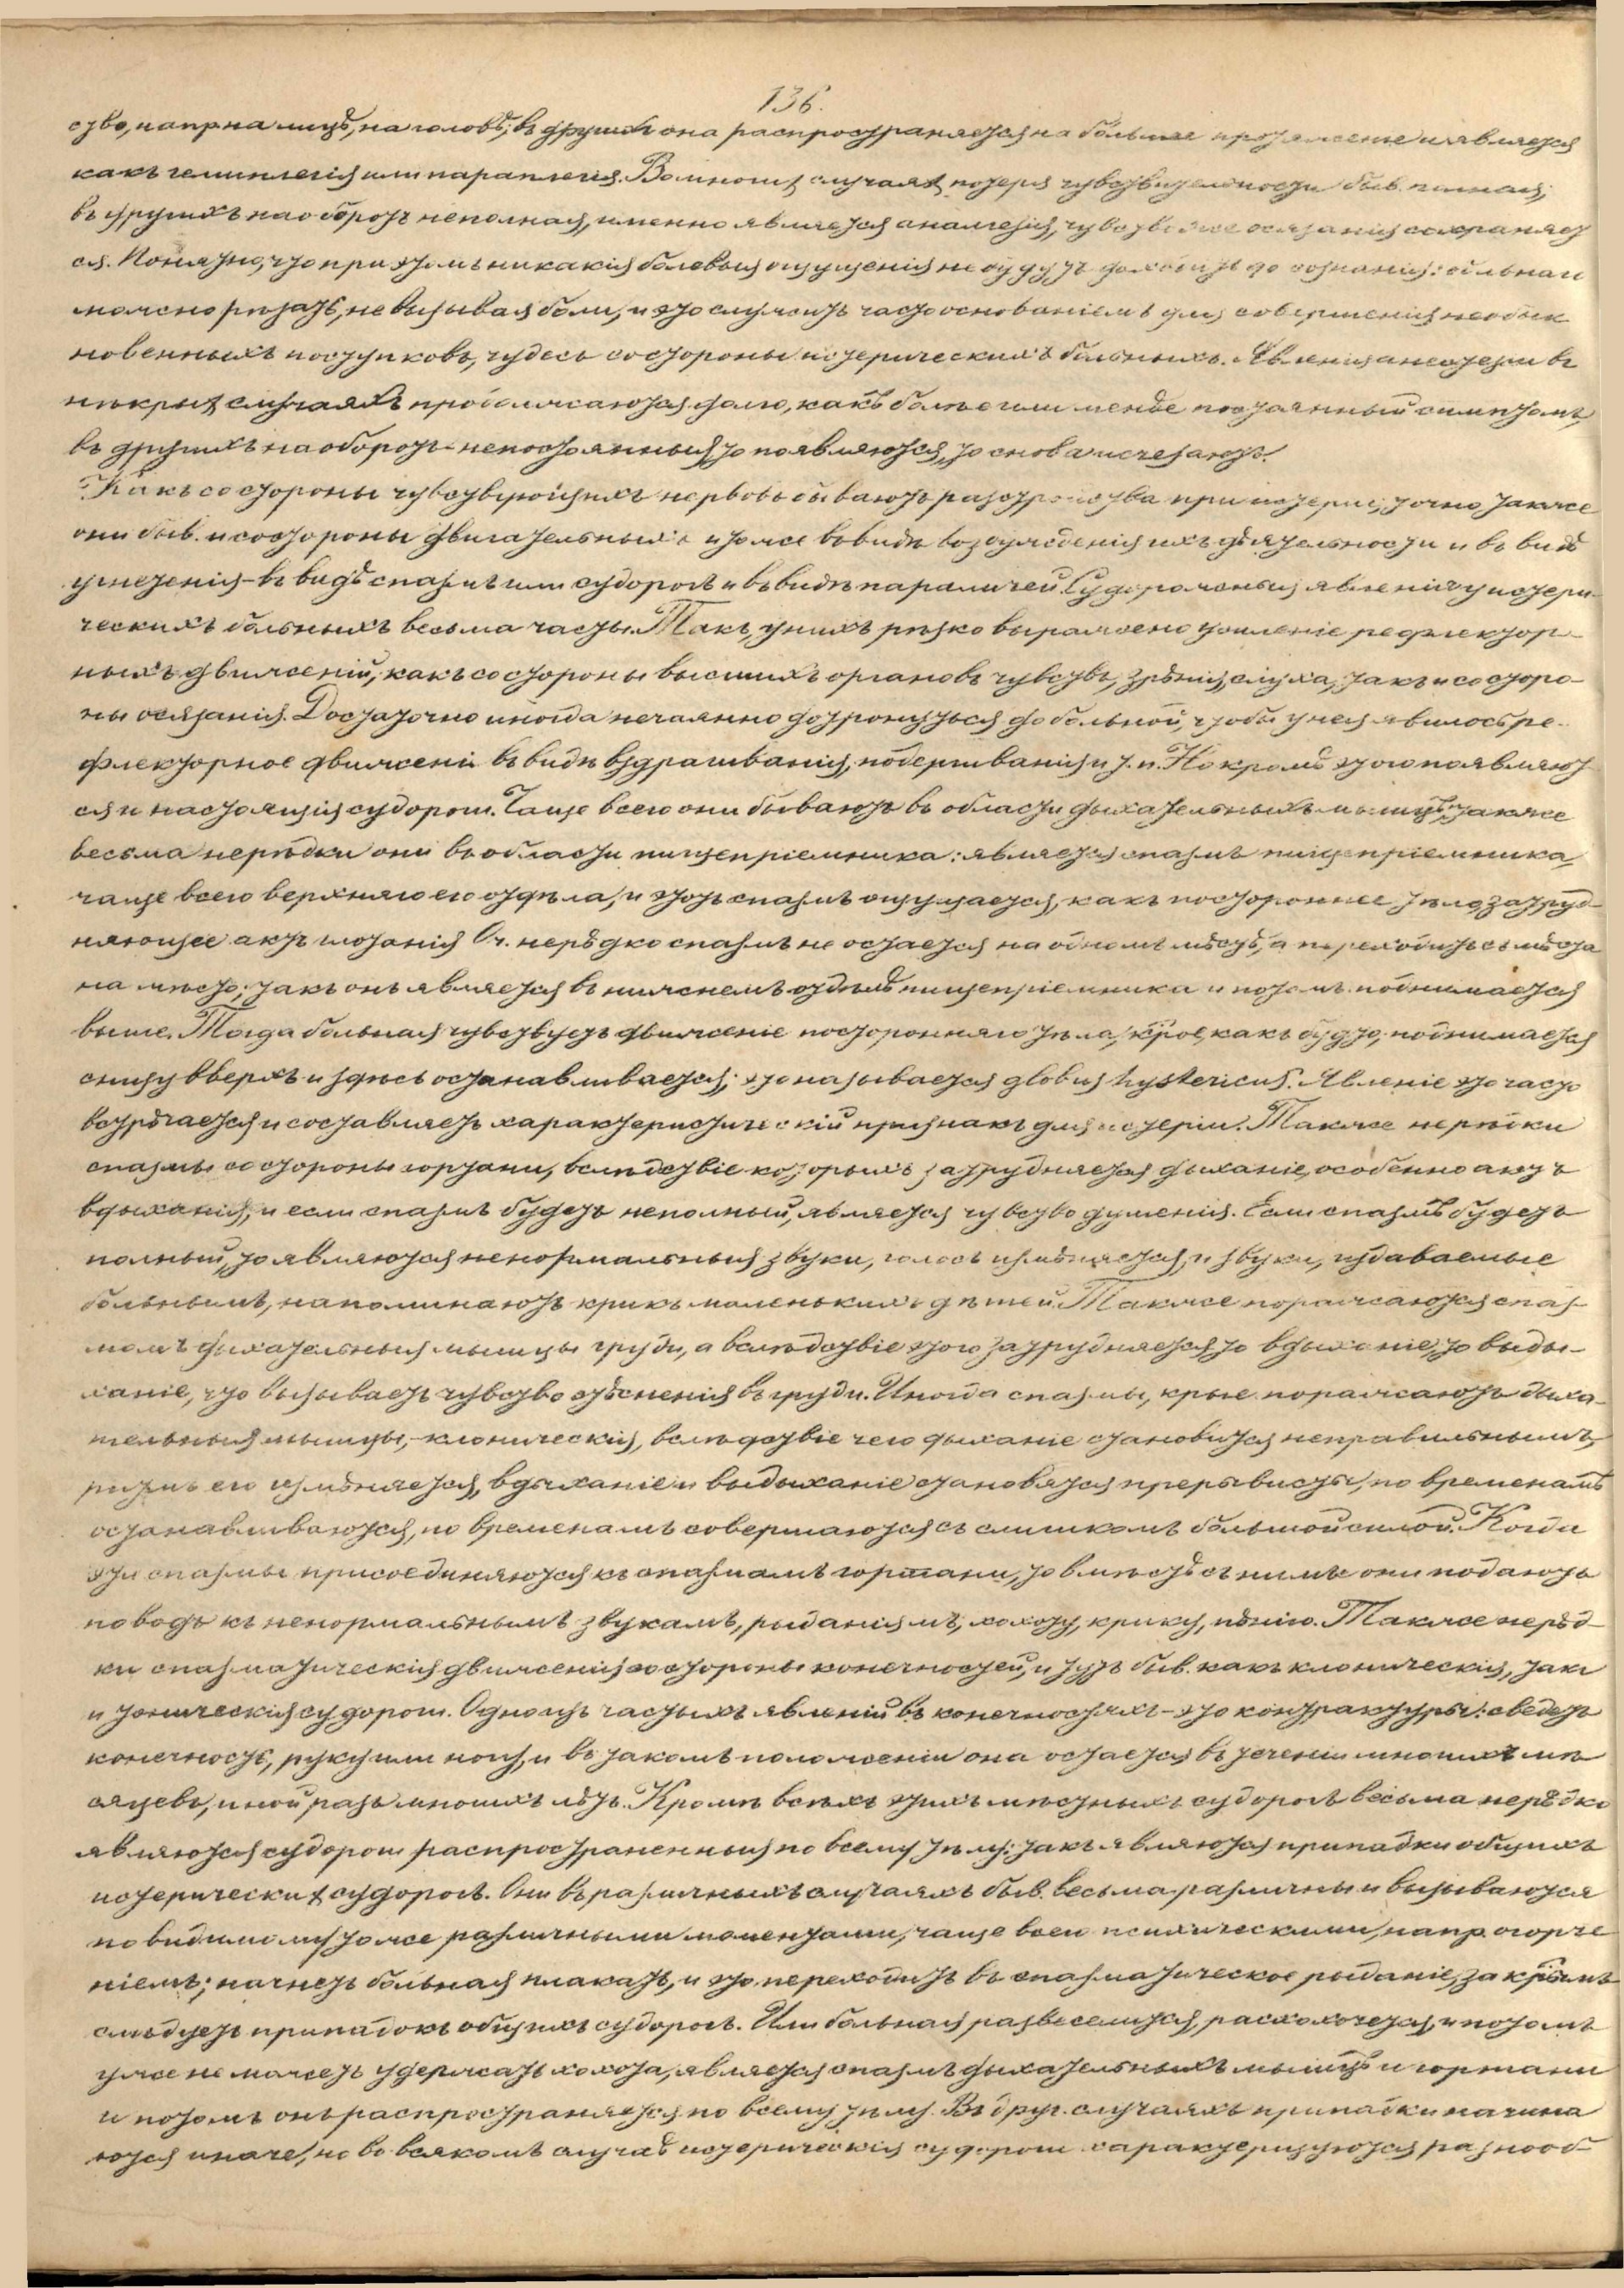 136.
ство, напр на лицѣ, на головѣ; въ другихъ она распространяется на большее протяженіе и является
какъ гемиплегія или параплегія. Во многих случаях потеря чувствительности быв. полная,
въ другихъ наоборотъ неполная, именно является аналгезія, чувство же осязанія сохраняет
ся. Понятно, что при этомъ никакія болевыя ощущенія не будутъ доходить до сознанія: больная
можно рѣзать, не вызывая боли, и это служитъ часто основаніемъ для совершенія необык
новенныхъ поступковъ, чудесъ со стороны истерическихъ больныхъ. Явленія анестезіи въ
нѣкрых случаяхъ продолжаются долго, какъ более или менѣе постоянный симптомъ,
въ другихъ наоборотъ - непостоянныя, то появляются, то снова исчезаютъ.
Какъ со стороны чувствующихъ нервовъ бываютъ разстройства при истеріи, точно также
они быв. и со стороны двигательныхъ и тоже въ видѣ возбужденія ихъ дѣятельности и въ видѣ
угнетенія - въ видѣ спазмъ или судорогъ и въ видѣ параличей. Судорожныя явленія у истери-
ческихъ больныхъ весьма часты. Такъ, у нихъ рѣзко выражено усиленіе рефлектор-
ныхъ движеній, какъ со стороны высшихъ органовъ чувствъ, зрѣнія, слуха, такъ и со сторо-
ны осязанія. Достаточно иногда нечаянно дотронуться до больной, чтобы у нея явилось ре-
флекторное движеніе въ видѣ вздрагиванія, подергиванія и т. п. Но кромѣ этого появляют
ся и настоящія судороги. Чаще всего они бываютъ въ области дыхательныхъ мышцъ, также
весьма нерѣдки они въ области пищепріемника: является спазмъ пищепріемника,
чаще всего верхняго его отдѣла, и этотъ спазмъ ощущается, какъ постороннее тѣло, затруд-
няющее актъ глотанія. Оч. нерѣдко спазмъ не остается на одномъ мѣстѣ, а переходитъ съ мѣста
на мѣсто; такъ онъ является въ нижнемъ отдѣлѣ пищепріемника и потомъ поднимается
выше. Тогда больная чувствуетъ движеніе посторонняго тѣла, крое, какъ будто, поднимается
снизу вверхъ и здѣсь останавливается; это называется globus hystericus. Явленіе это часто
встрѣчается и составляетъ характеристическій признакъ для истеріи. Также нерѣдки
спазмы со стороны гортани, вслѣдствіе которыхъ затрудняется дыханіе, особенно актъ
вдыханія, и если спазмъ будетъ неполный, является чувство душенія. Если спазмъ будетъ
полный, то являются ненормальныя звуки, голосъ измѣняется, и звуки, издаваемые
больнымъ, напоминаютъ крикъ маленькихъ дѣтей. Также поражаются спаз-
момъ дыхательныя мышцы груди, а вслѣдствіе этого затрудняется то вдыханіе, то выды-
ханіе, что вызываетъ чувство стѣсненія въ груди. Иногда спазмы, крые поражаютъ дыха-
тельныя мышцы, - клоническія, вслѣдствіе чего дыханіе становится неправильнымъ,
ритмъ его измѣняется, вдыханіе и выдыханіе становятся прерывисты, по временамъ
останавливаются, по временамъ совершаются съ слишкомъ большой силой. Когда
эти спазмы присоединяются къ спазмамъ гортани, то вмѣстѣ съ ними они подаютъ
поводъ къ ненормальнымъ звукамъ, рыданіямъ, хохоту, крику, пѣнію. Также нерѣд-
ки спазматическія движенія со стороны конечностей, и тутъ быв. какъ клоническія, такъ
и тоническія судороги. Одно изъ частыхъ явленій въ конечностяхъ - это контрактуры: сведетъ
конечность, руку или ногу, и въ такомъ положеніи она остается въ теченіи многихъ мѣ
сяцевъ, иной разъ многихъ лѣтъ. Кромѣ всѣхъ этихъ мѣстныхъ судорогъ весьма нерѣдко
являются судороги распространенныя по всему тѣлу: такъ являются припадки общихъ
истерических судорогъ. Они въ различныхъ случаяхъ быв. весьма различны и вызываются
по видимому тоже различными моментами, чаще всего психическими, напр огорче
ніемъ; начнетъ больная плакать, и это переходитъ въ спазматическое рыданіе, за крымъ
слѣдуетъ припадокъ общихъ судорогъ. Или больная развеселится, расхохочется, и потомъ
уже не можетъ удержать хохота, является спазмъ дыхательныхъ мышцъ и гортани
и потомъ онъ распространяется по всему тѣлу. Въ друг. случаяхъ припадки начина
ются иначе, но во всякомъ случаѣ истерическія судороги характеризуются разнооб-